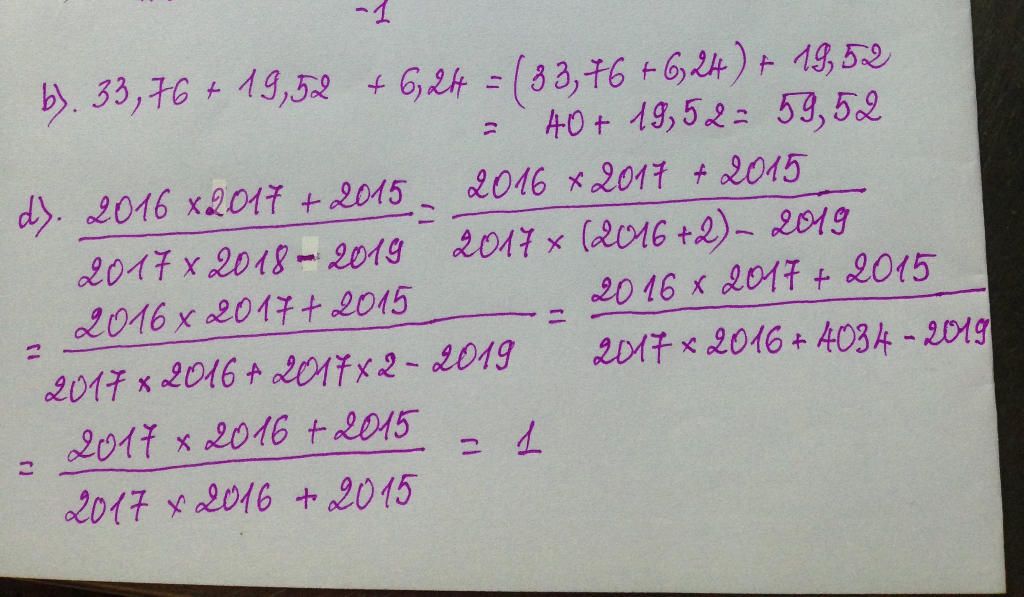 -1
b). 33,76 + 19,52 + 6,24 = (33,76 + 6,24) + 19,52
= 40 + 19,52 = 59,52
d). \frac{2016 × 2017 + 2015}{2017 × 2018 - 2019} = \frac{2016 × 2017 + 2015}{2017 × (2016 + 2) - 2019}
= \frac{2016 × 2017 + 2015}{2017 × 2016 + 2017 × 2 - 2019} = \frac{2016 × 2017 + 2015}{2017 × 2016 + 4034 - 2019}
= \frac{2017 × 2016 + 2015}{2017 × 2016 + 2015} = 1